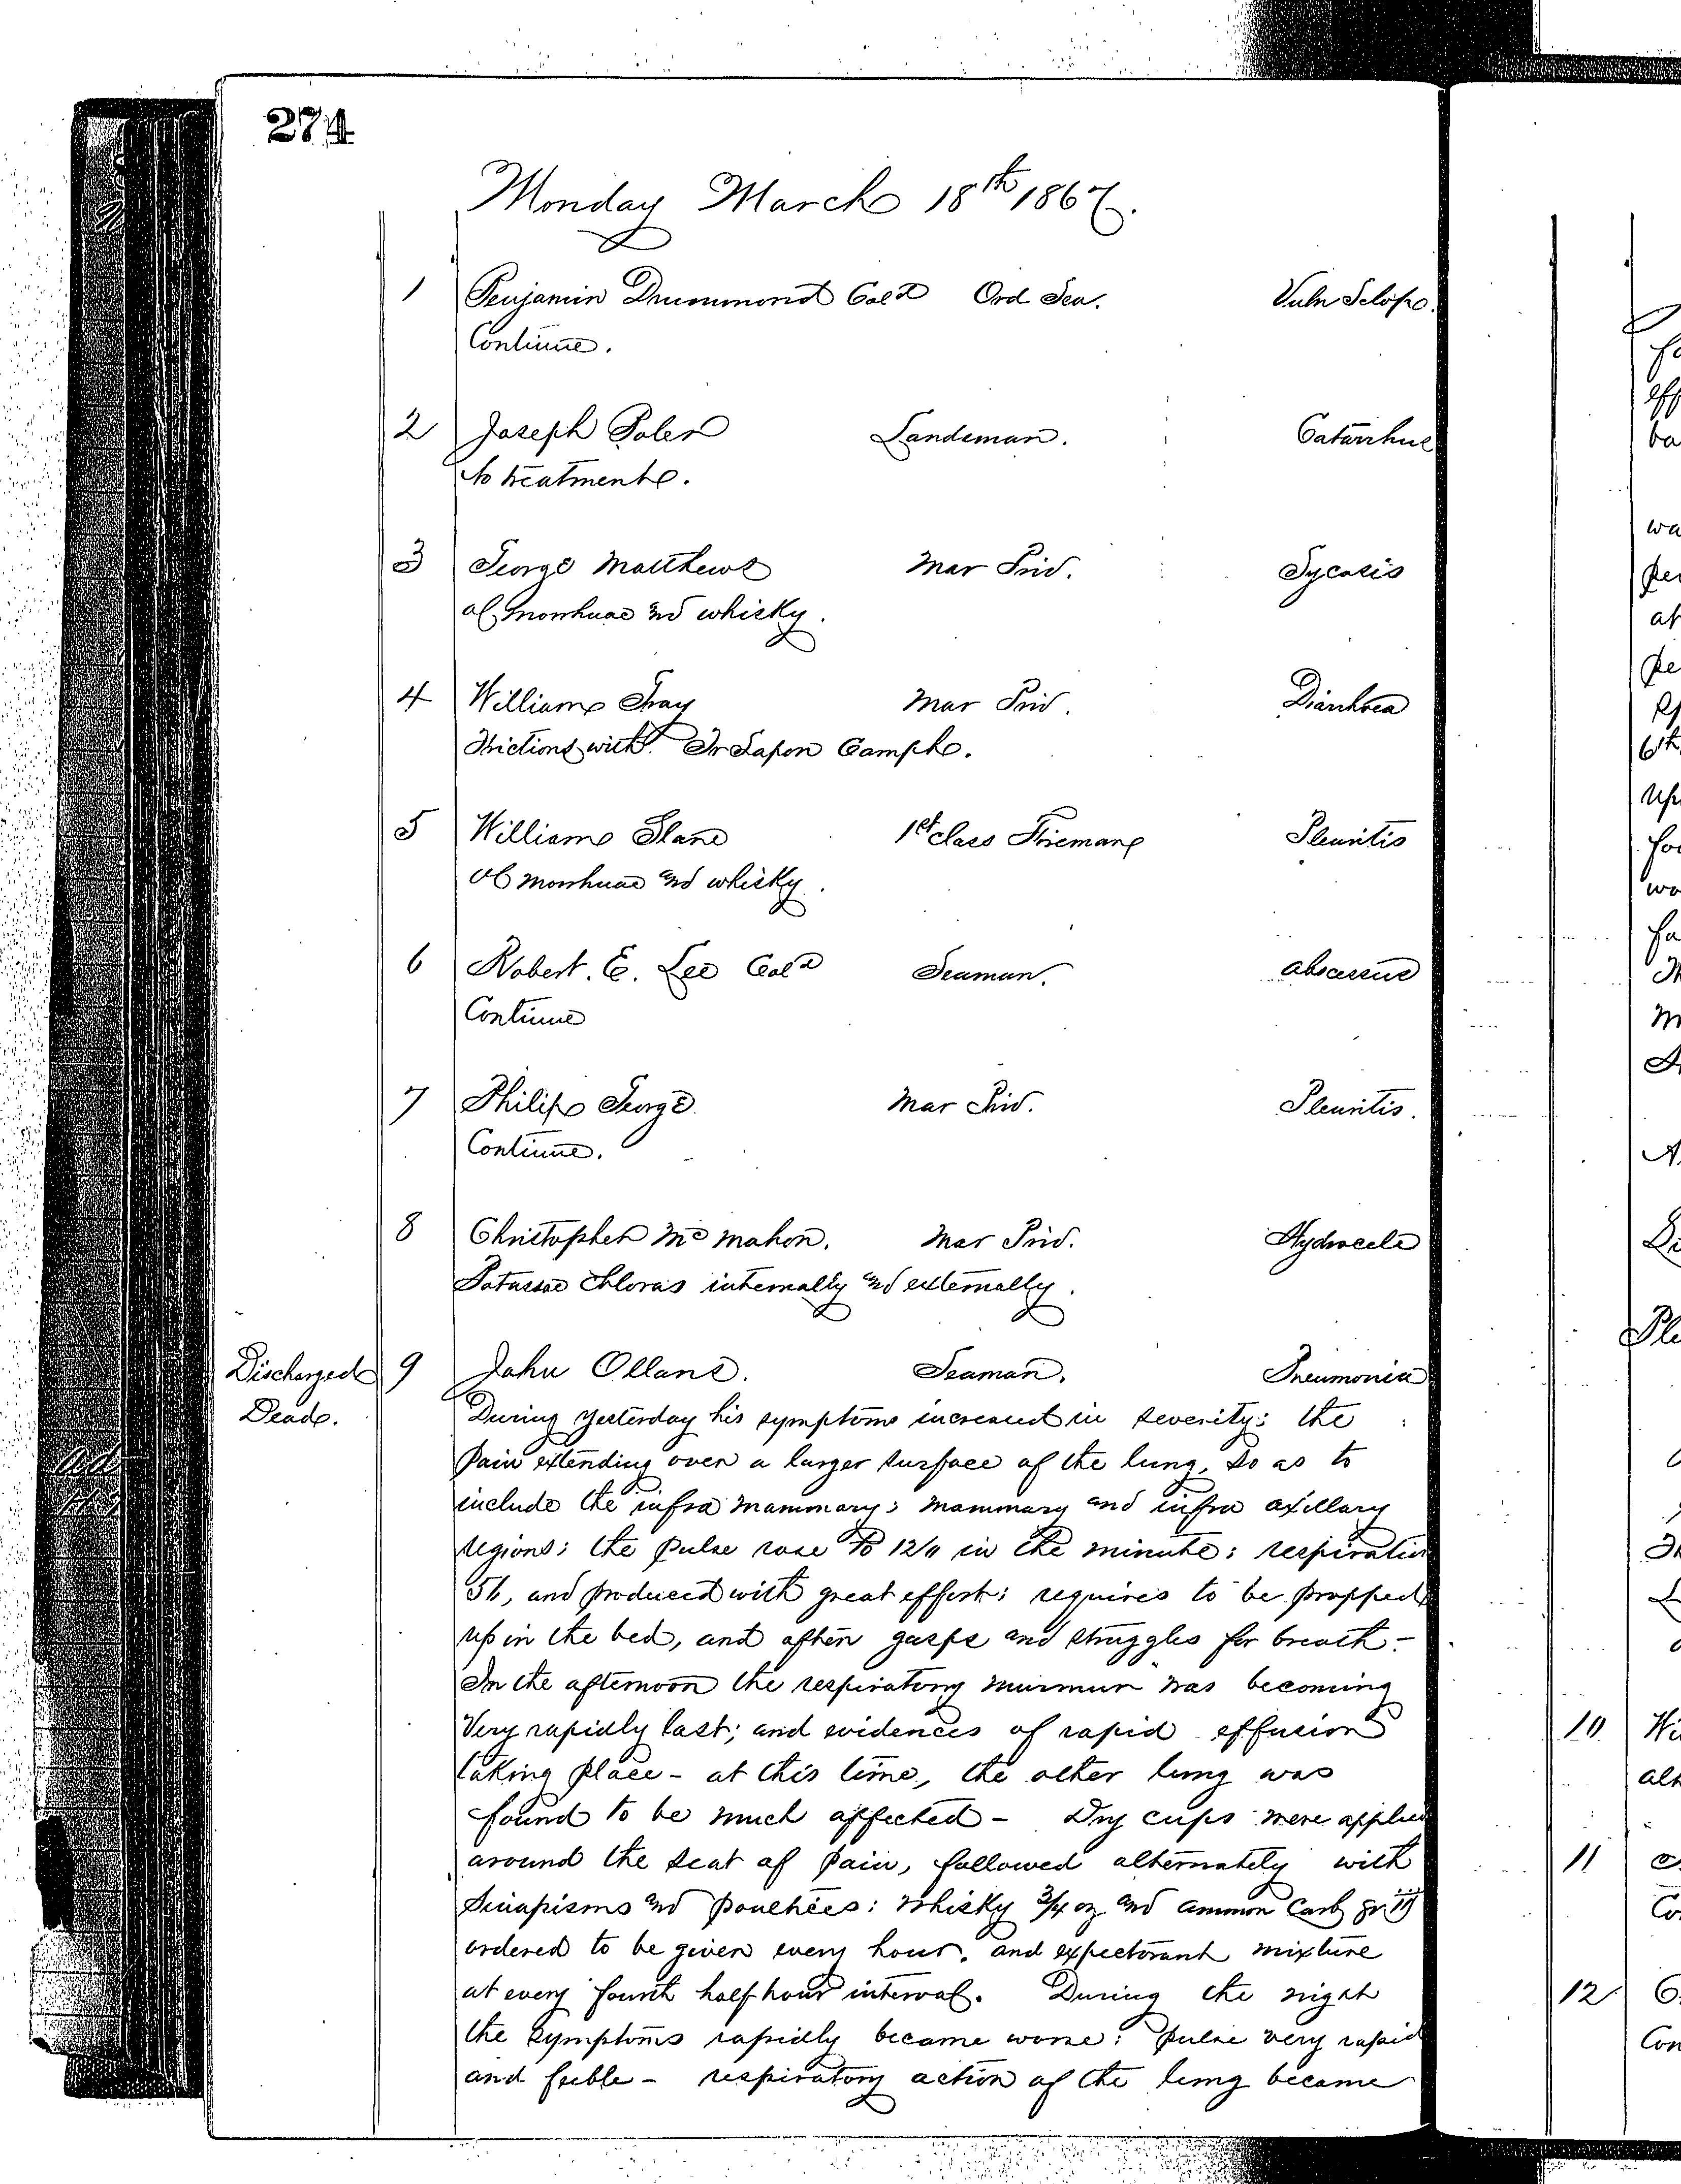 274
Monday March 18th 1867.
1 Benjamin Drummond Cold Ord Sea. Vuln Sclop.
Continue.
2 Joseph Landsman. Catarrhus
No treatment.
3 George Matthews Mar Priv. Sycosis
Ol Morrhuae and whisky.
4 William Gray Mar Priv. Diarrhoea
Frictions with Sapon Camph.
5 William Slane 1st class Fireman Pleuritis
Ol Morrhuae and whisky.
6 Robert. E. Lee Cold Seaman. Abscessus
Continue
7 Philip George Mar Priv. Pleuritis.
Continue.
8 Christopher Mc Mahon. Mar Priv. Hydrocele
Potassae Chloras internally and externally.
Discharged 9 John Seaman. Pneumonia
Dead.
During yesterday his symptoms increased in severity: the
pain extending over a larger surface of the lung, so as to
include the infra mammary; mammary and infra axillary
regions; the pulse rose to 124 in the minute; respiration
56, and produced with great effort; requires to be propped
up in the bed, and often gasps and struggles for breath -
In the afternoon the respiratory murmur was becoming
Very rapidly lost; and evidences of rapid effusion
taking place - at this time, the other lung was
found to be much affected - Dry cups were applied
around the seat of pain, followed alternately with
Sinapisms and poultices: Whisky 3/4 oz and Ammon Carb gr iij
ordered to be given every hour, and expectorant mixture
at every fourth half hour interval. During the night
the symptoms rapidly became worse: pulse very rapid
and feeble - respiratory action of the lung became
10
11
12